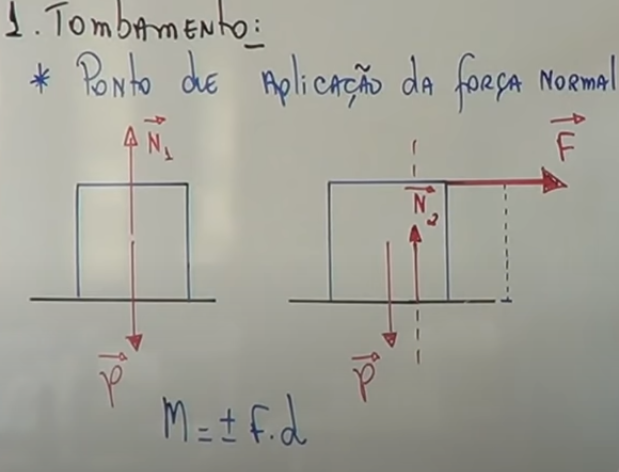 1. Tombamento:
* Ponto de Aplicação da força Normal
N₁
F
N₂
P
P
M = ± F.d